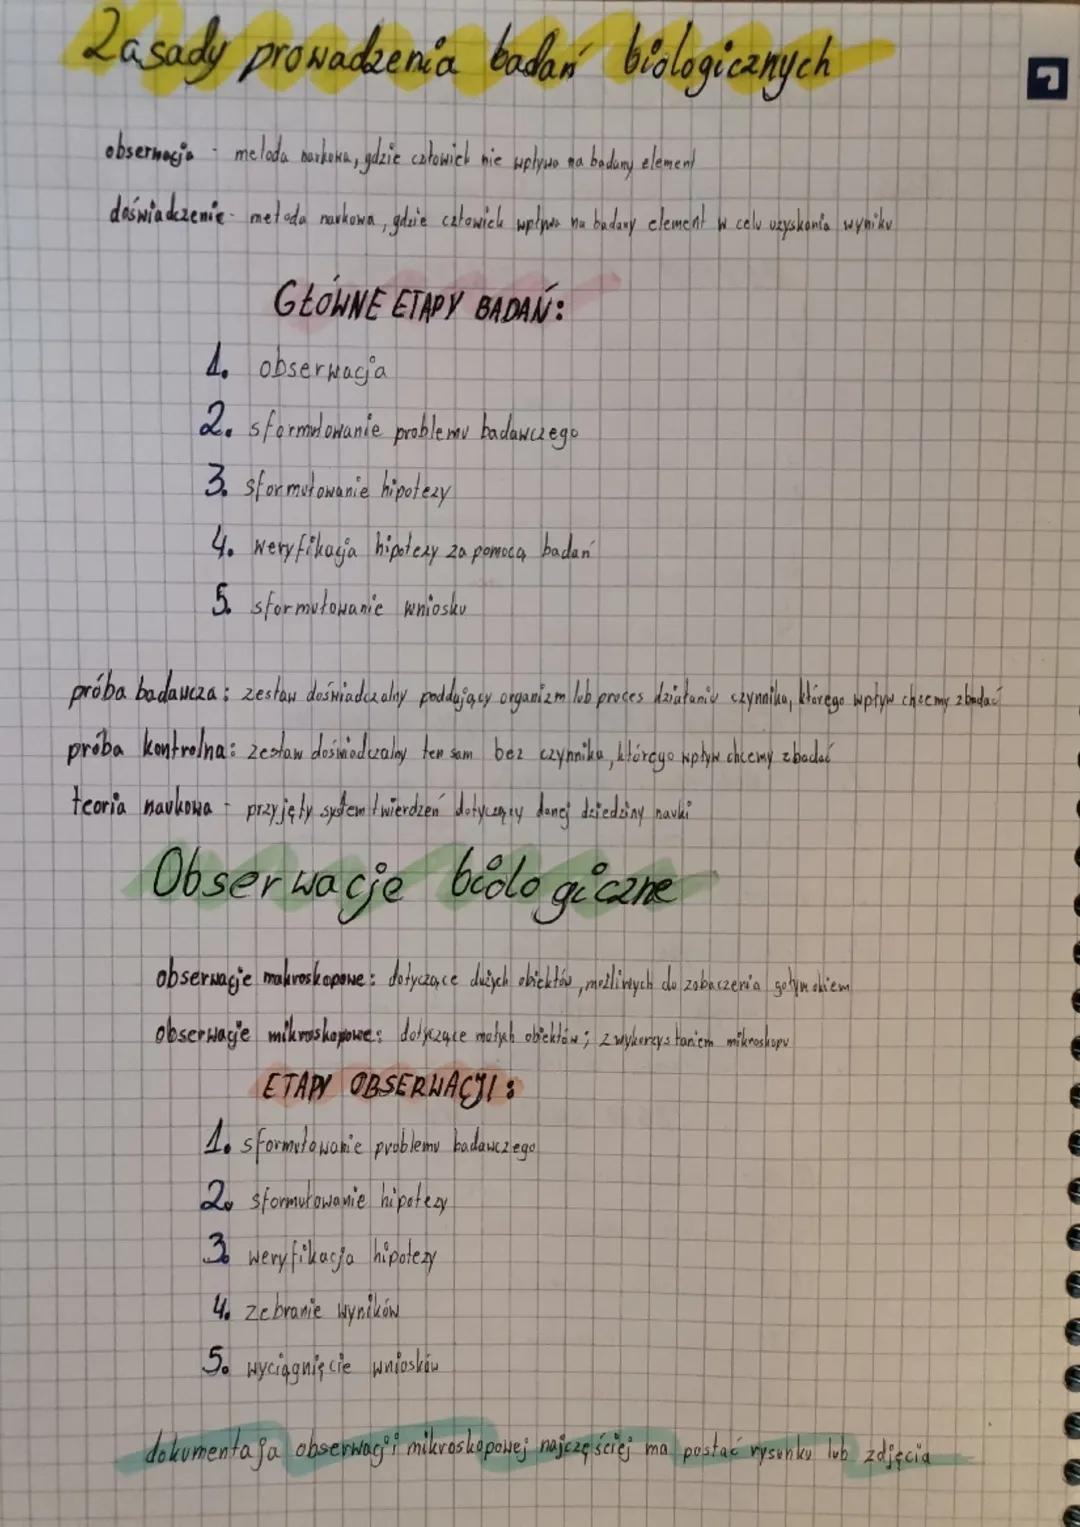 Zasady prowadzenia badań biologicznych
obserwacja - metoda naukowa, gdzie człowiek nie wpływa na badany element
doświadczenie - metoda naukowa, gdzie człowiek wpływa na badany element w celu uzyskania wyniku
GŁÓWNE ETAPY BADAŃ:
1. obserwacja
2. sformułowanie problemu badawczego
3. sformułowanie hipotezy
4. weryfikacja hipotezy za pomocą badań
5. sformułowanie wniosku
próba badawcza: zestaw doświadczalny poddający organizm lub proces działaniu czynnika, którego wpływ chcemy zbadać
próba kontrolna: zestaw doświadczalny ten sam bez czynnika, którego wpływ chcemy zbadać
teoria naukowa - przyjęty system twierdzeń dotyczący danej dziedziny nauki
Obserwacje biologiczne
obserwacje makroskopowe: dotyczące dużych obiektów, możliwych do zobaczenia gołym okiem
obserwacje mikroskopowe: dotyczące małych obiektów; z wykorzystaniem mikroskopu
ETAPY OBSERWACJI:
1. sformułowanie problemu badawczego
2. sformułowanie hipotezy
3. weryfikacja hipotezy
4. zebranie wyników
5. wyciągnięcie wniosków
dokumentacja obserwacji mikroskopowej najczęściej ma postać rysunku lub zdjęcia